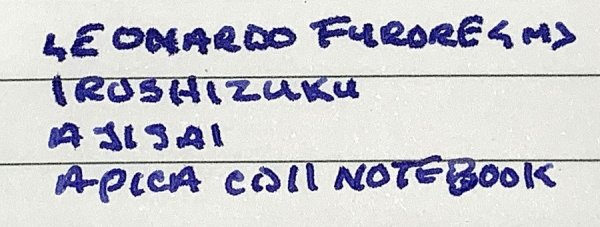 LEONARDO FURORE <M>
IROSHIZUKU
AJISAI
APICA CD11 NOTEBOOK